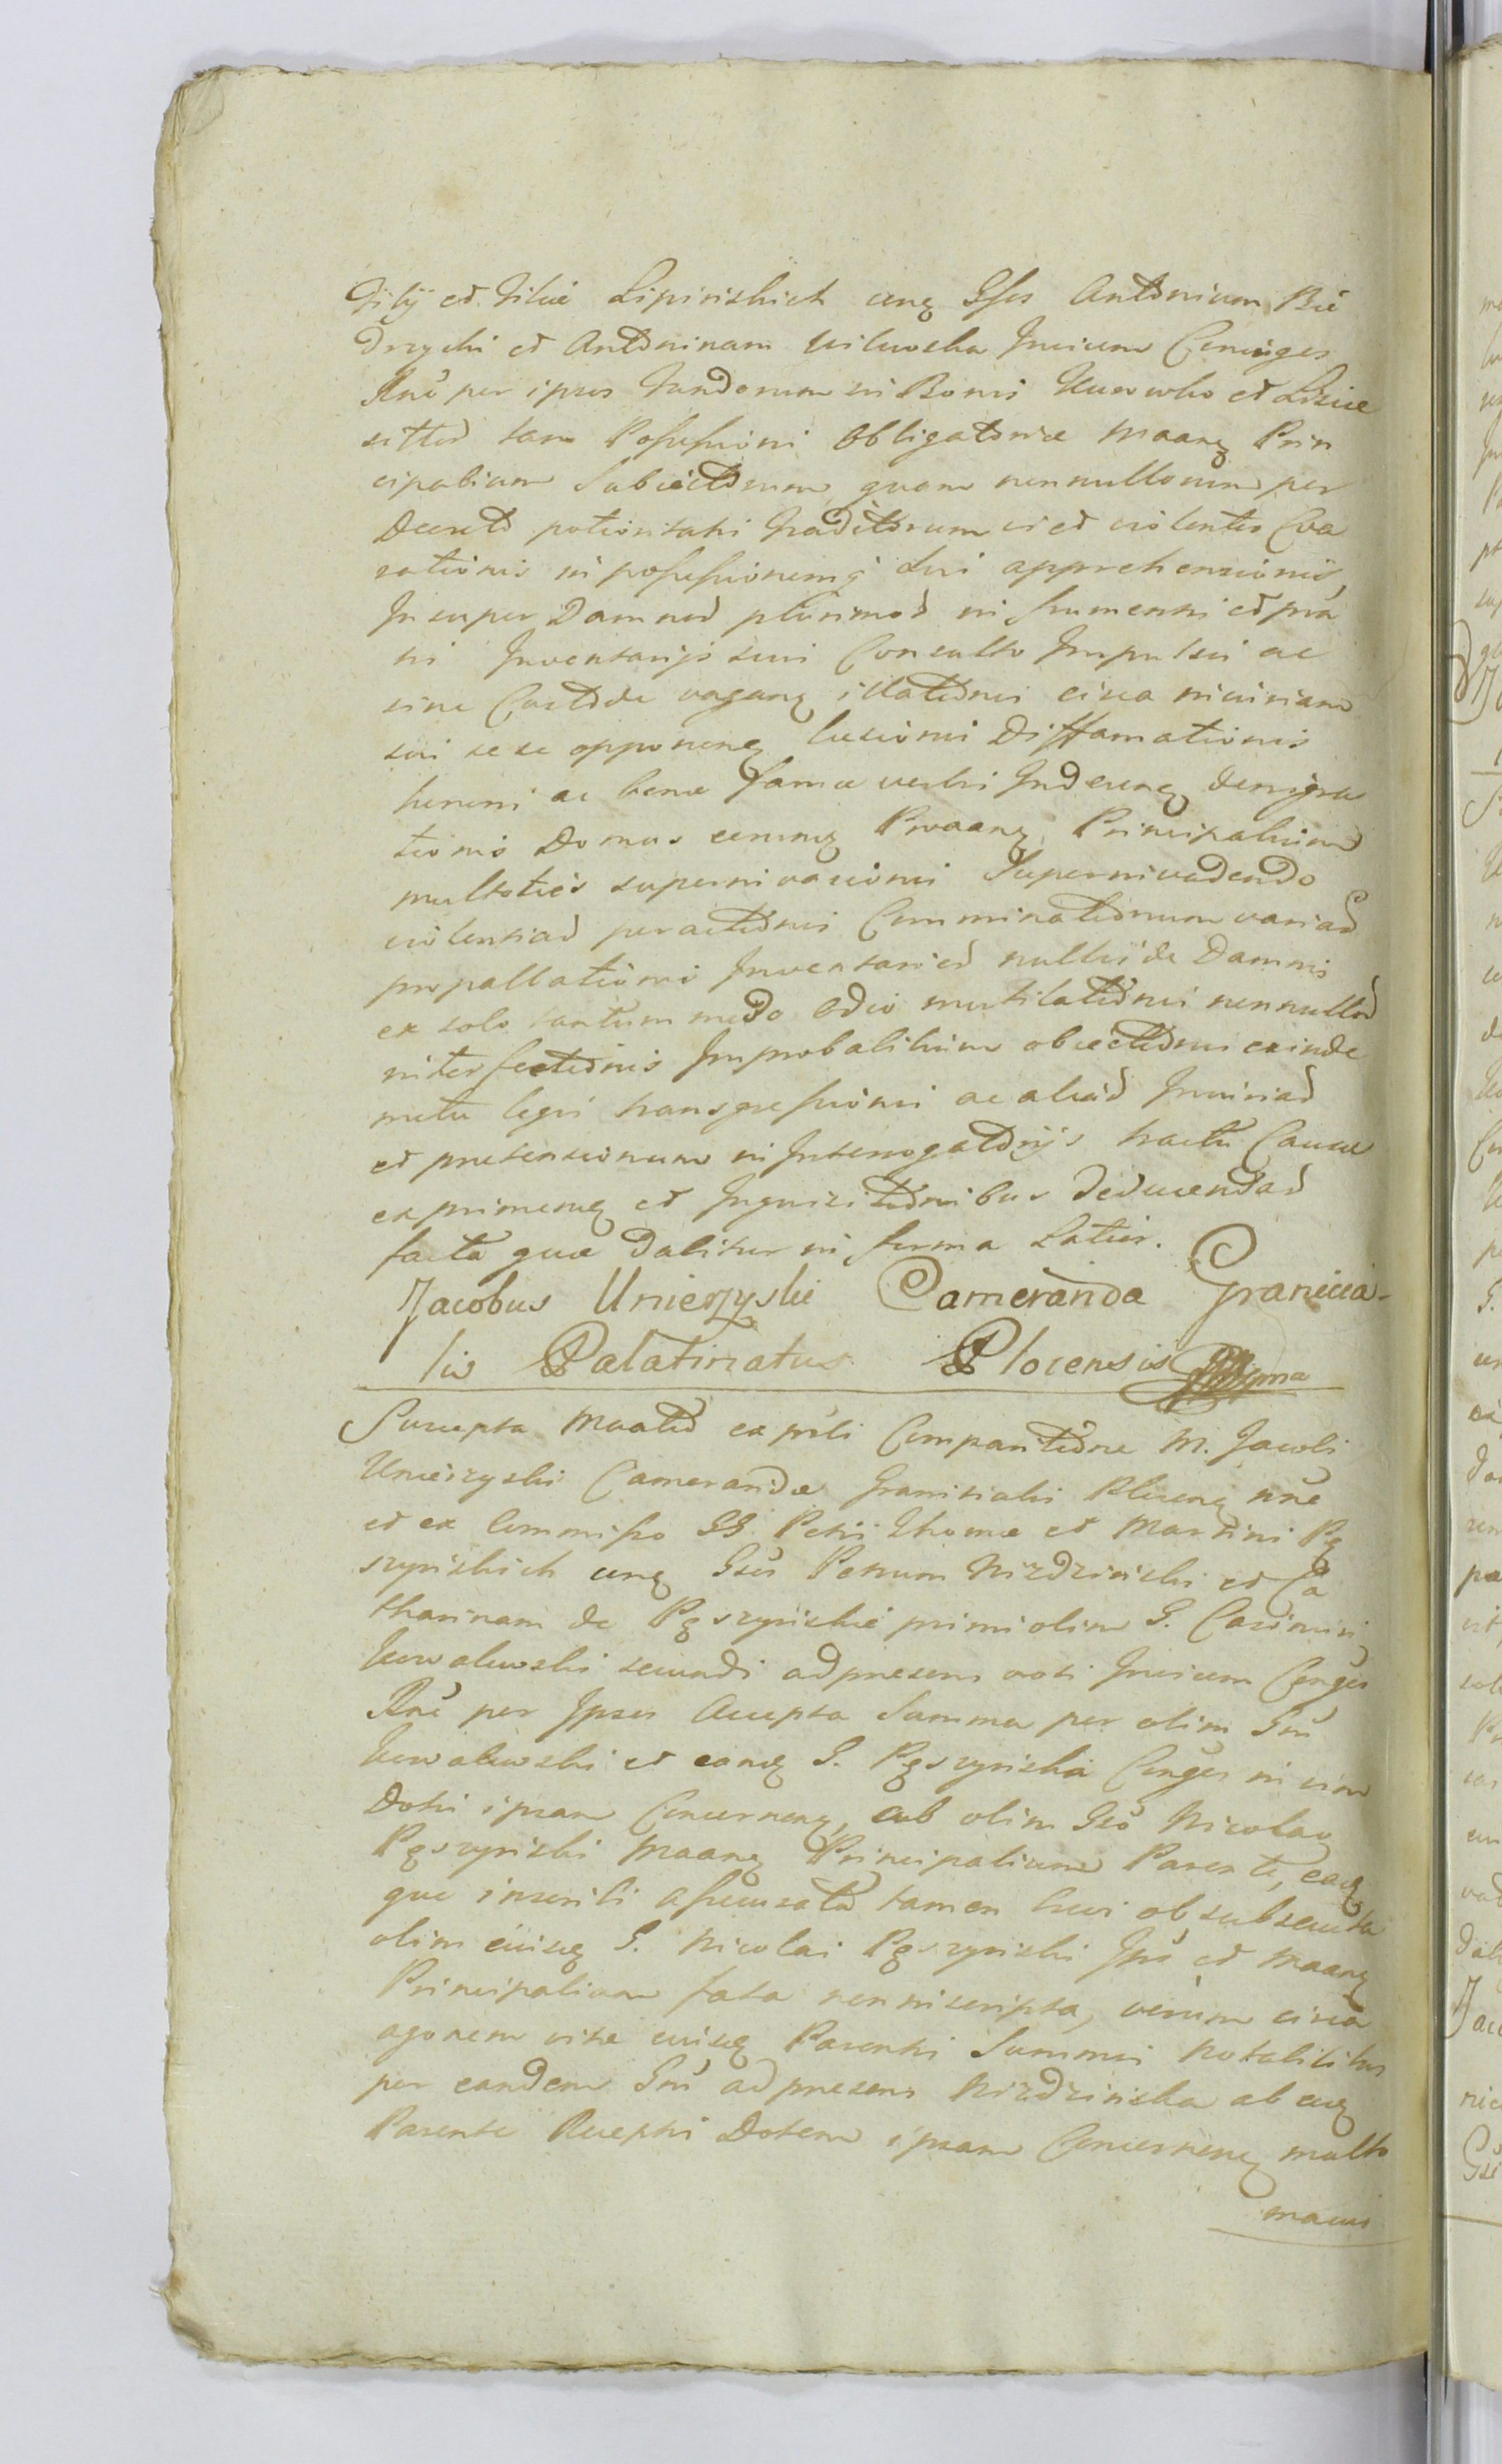 Filij et Filiae Lipinskich conq Gsos Antonium Bie
drzycki et Antoninam Milewska Invicem Coniuges
Rnē per ipsos Fundorum in Bonis et
sittos tam Possessioni Obligatoriae Maanq Prin
cipalium Subiectorum, quam nonnullorum per
Decreta potioritatis Traditorum vi et violenter Eva
sationis in possessionemq Sui apprehensionis,
Insuper Damnor plurimor in frumentis et pra
tis Inventarijs suis Consulto Impulsis ac
sine Custode vaganq illationis circa iniuriam
sui sese opponenq laesionis Diffamationis
honoris ac bonae famae verbis Indecenq denigra
tionis Domus eorumq Praanq Principalium
multoties superinvasionis Superinvadendo
violentiar peractionis Comminationum variar
propallationis Inventarior nullius de Damnis
ex solo tantummodo odio mutilationis nonnullor
interfectionis Improbabilium obiectionis exinde
metu legis transgressionis ac aliar Iniuriar
et pretensionum in Interrogatorijs tractu Causae
exprimenq et Inquisitionibus deducendar
facta quae dabitur in forma Latior.
Jacobus Unierzyski Cameranda Granicia-
lis Palatinatus Plocensis mp
Suscepta Maatio ex prsti Comparitione M. Jacobi
Unierzyski Camerandae Granicialis Plocenq nrīe
et ex Commisso GG. Petri Thomae et Martini Pq
szynskich conq Gsūs Petrum Nizdzinski et Ca
tharinam de Pqszynskie primi olim G. Casimiri
Kowalewski secundi ad praesens voti Invicem Conges
Rnē per Ipsos Accepta Summa per olim Gsū
Kowalewski et eanq G. Pqszynska Conges in vim
Dotis ipsam Concernenq, ab olim Gsō Nicolao
Pqszynski Maanq Principalium Parente, eaq
que inscribi assecurata tamen Suis ob subsecuta
olim eiusq G. Nicolai Pqszynski Iprs et Maanq
Principalium fata non inscripta, verum circa
agonem vitae eiusq Parentis Summis notabilibus
per eandem Gsā ad praesens Nizdzinska ab eoq
Parente Receptis Dotem ipsam Concernenq multo
maius